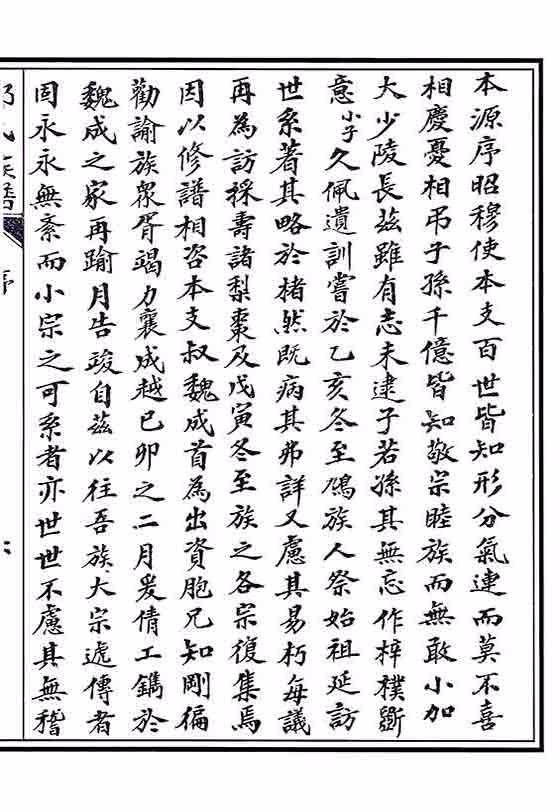 本源序昭穆使本支百世皆知形分氣連而莫不喜
相慶憂相弔子孫千億皆知敬宗睦族而無敢小加
大少陵長茲雖有志未逮子若孫其無忘作梓樸斵
意小子久佩遺訓嘗於乙亥冬至鳩族人祭始祖延訪
世系著其略於楮然既病其弗詳又慮其易朽每議
再為訪採壽諸梨棗及戊寅冬至族之各宗復集焉
因以修譜相咨本支叔魏成首為出資胞兄知剛徧
勸諭族眾胥竭力襄成越己卯之二月爰倩工鐫於
魏成之家再踰月告竣自茲以往吾族大宗遞傳者
固永永無紊而小宗之可系者亦世世不慮其無稽
氏族譜
序